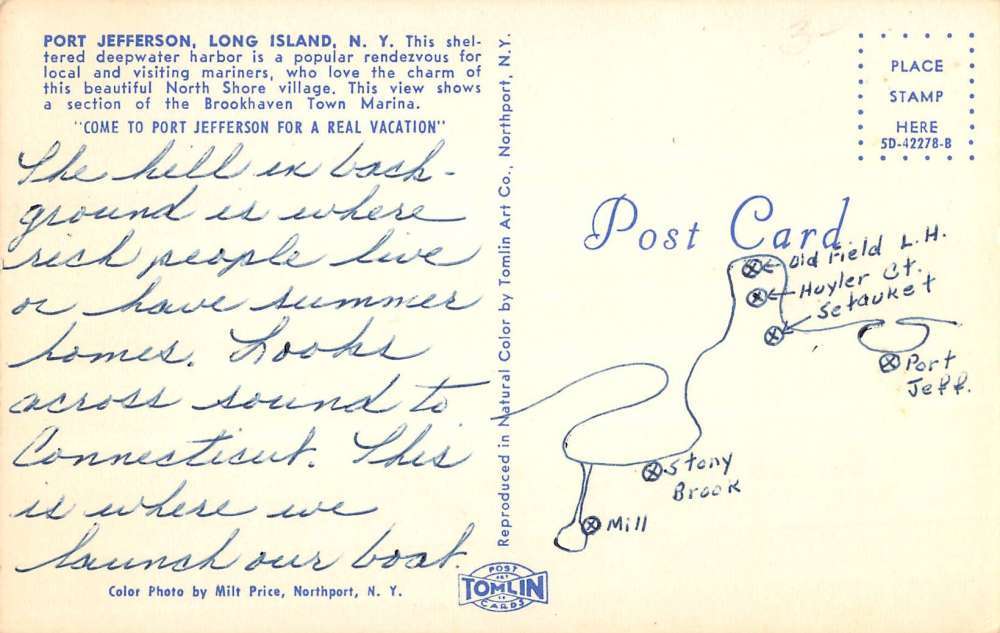 PORT JEFFERSON, LONG ISLAND, N. Y. This shel-
tered deepwater harbor is a popular rendezvous for
local and visiting mariners, who love the charm of
this beautiful North Shore village. This view shows
a section of the Brookhaven Town Marina.
"COME TO PORT JEFFERSON FOR A REAL VACATION"
The hill in back-
ground is where
rich people live
or have summer
homes. Looks
across sound to
Connecticut. This
is where we
launch our boat.
Color Photo by Milt Price, Northport, N. Y.
Reproduced in Natural Color by Tomlin Art Co., Northport, N.Y.
POST
TOMLIN
CARDS
3-
PLACE
STAMP
HERE
5D-42278-B
Post Card
Old Field L.H.
Huyler Ct.
Setauket
Port
Jeff.
Stony
Brook
Mill